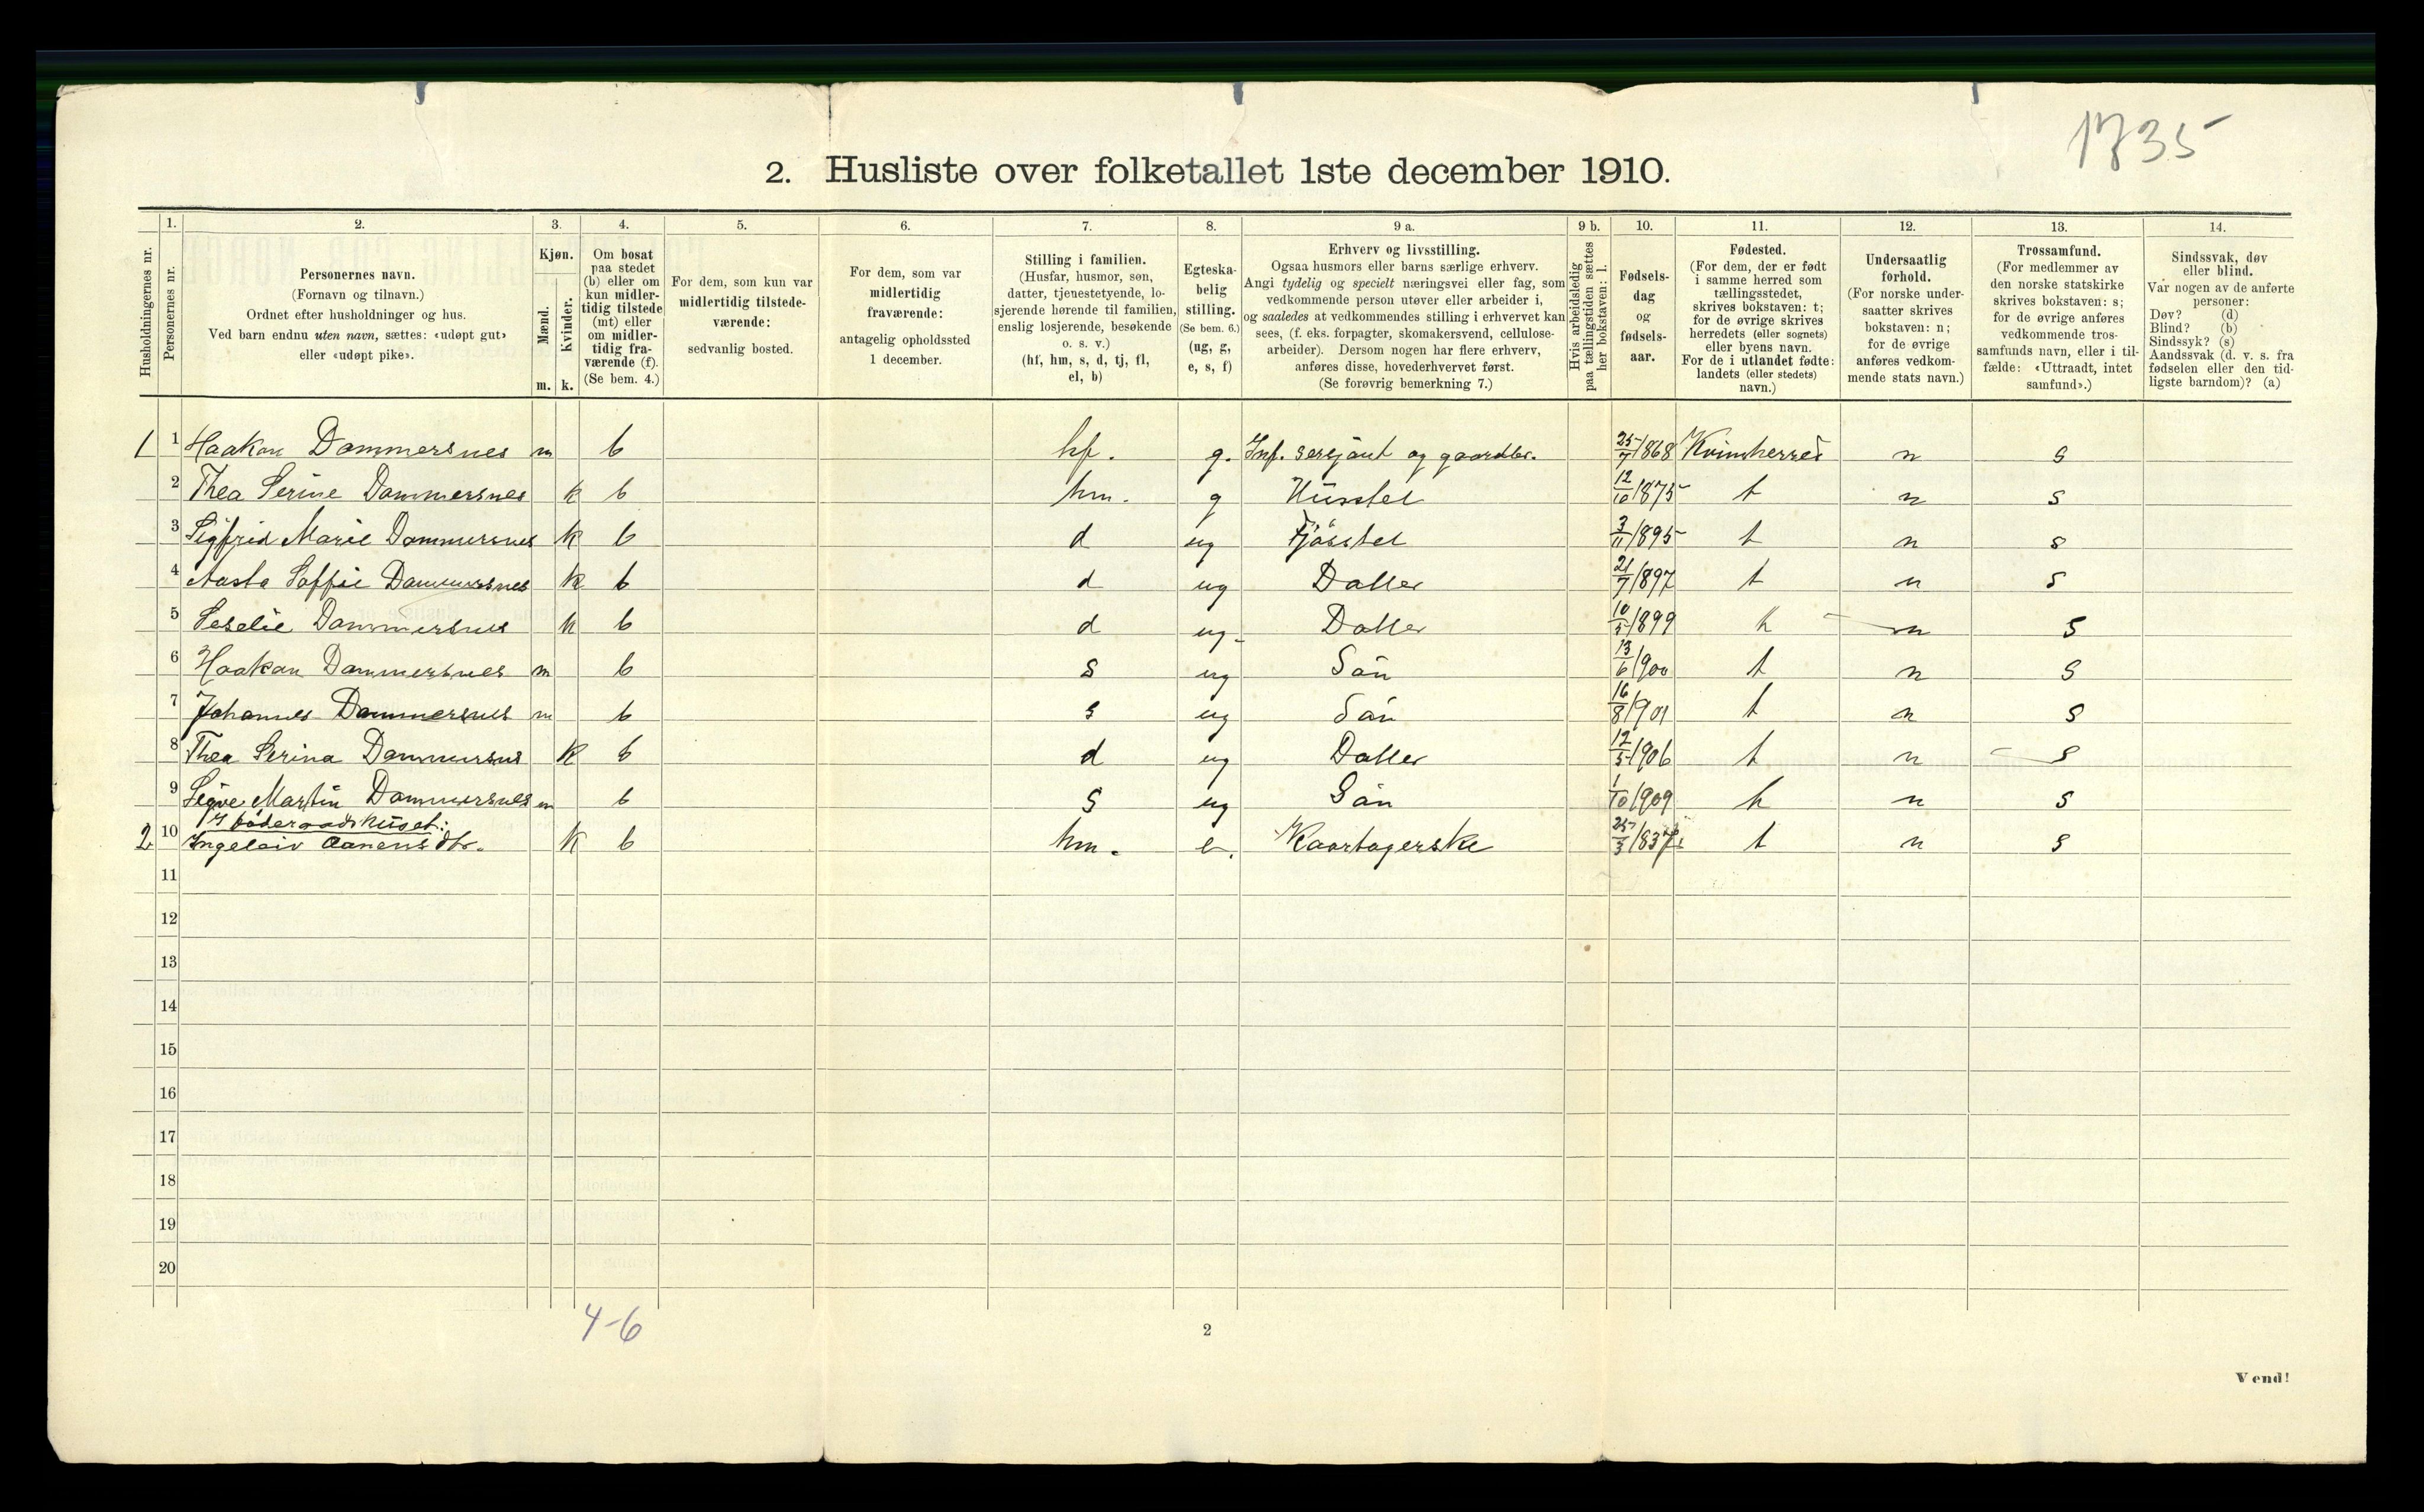 1735
2. Husliste over folketallet 1ste december 1910.
Husholdningernes nr.
1. Personernes nr.
2. Personernes navn.
(Fornavn og tilnavn.)
Ordnet efter husholdninger og hus.
Ved barn endnu uten navn, sættes: «udøpt gut»
eller «udøpt pike».
3. Kjøn.
Mænd. m.
Kvinder. k.
4. Om bosat
paa stedet
(b) eller om
kun midler-
tidig tilstede
(mt) eller
om midler-
tidig fra-
værende (f).
(Se bem. 4.)
5. For dem, som kun var
midlertidig tilstede-
værende:
sedvanlig bosted.
6. For dem, som var
midlertidig
fraværende:
antagelig opholdssted
1 december.
7. Stilling i familien.
(Husfar, husmor, søn,
datter, tjenestetyende, lo-
sjerende hørende til familien,
enslig losjerende, besøkende
o. s. v.)
(hf, hm, s, d, tj, fl,
el, b)
8. Egteska-
belig
stilling.
(Se bem. 6.)
(ug, g,
e, s, f)
9 a. Erhverv og livsstilling.
Ogsaa husmors eller barns særlige erhverv.
Angi tydelig og specielt næringsvei eller fag, som
vedkommende person utøver eller arbeider i,
og saaledes at vedkommendes stilling i erhvervet kan
sees, (f. eks. forpagter, skomakersvend, cellulose-
arbeider). Dersom nogen har flere erhverv,
anføres disse, hovederhvervet først.
(Se forøvrig bemerkning 7.)
9 b. Hvis arbeidsledig
paa tællingstiden sættes
her bokstaven: l.
10. Fødsels-
dag
og
fødsels-
aar.
11. Fødested.
(For dem, der er født
i samme herred som
tællingsstedet,
skrives bokstaven: t;
for de øvrige skrives
herredets (eller sognets)
eller byens navn.
For de i utlandet fødte:
landets (eller stedets)
navn.)
12. Undersaatlig
forhold.
(For norske under-
saatter skrives
bokstaven: n;
for de øvrige
anføres vedkom-
mende stats navn.)
13. Trossamfund.
(For medlemmer av
den norske statskirke
skrives bokstaven: s;
for de øvrige anføres
vedkommende tros-
samfunds navn, eller i til-
fælde: «Uttraadt, intet
samfund».)
14. Sindssvak, døv
eller blind.
Var nogen av de anførte
personer:
Døv? (d)
Blind? (b)
Sindssyk? (s)
Aandssvak (d. v. s. fra
fødselen eller den tid-
ligste barndom)? (a)
1 1 Haakon Dommersnes m b hf. g. Inf. sersjant og gaardbr. 25/7 1868 Kvinherred n s
2 Thea Serine Dommersnes k b hm. g Husstel 12/10 1875 t n s
3 Sigfrid Marie Dommersnes k b d ug Fjösstel 3/11 1895 t n s
4 Aasta Soffie Dommersnes k b d ug Datter 21/7 1897 t n s
5 Seselie Dommersnes k b d ug. Datter 10/5 1899 t n s
6 Haakon Dommersnes m b s ug Sön 13/6 1900 t n s
7 Johannes Dommersnes m b s ug Sön 16/8 1901 t n s
8 Thea Serina Dommersnes k b d ug Datter 12/5 1906 t n s
9 Sigve Martin Dommersnes m b s ug Sön 1/10 1909 t n s
I föderaadshuset:
2 10 Ingeleiv Aanensdtr. k b hm. e. Kaartagerske 25/3 1837 t n s
11
12
13
14
15
16
17
18
19
20
4-6
2
Vend!